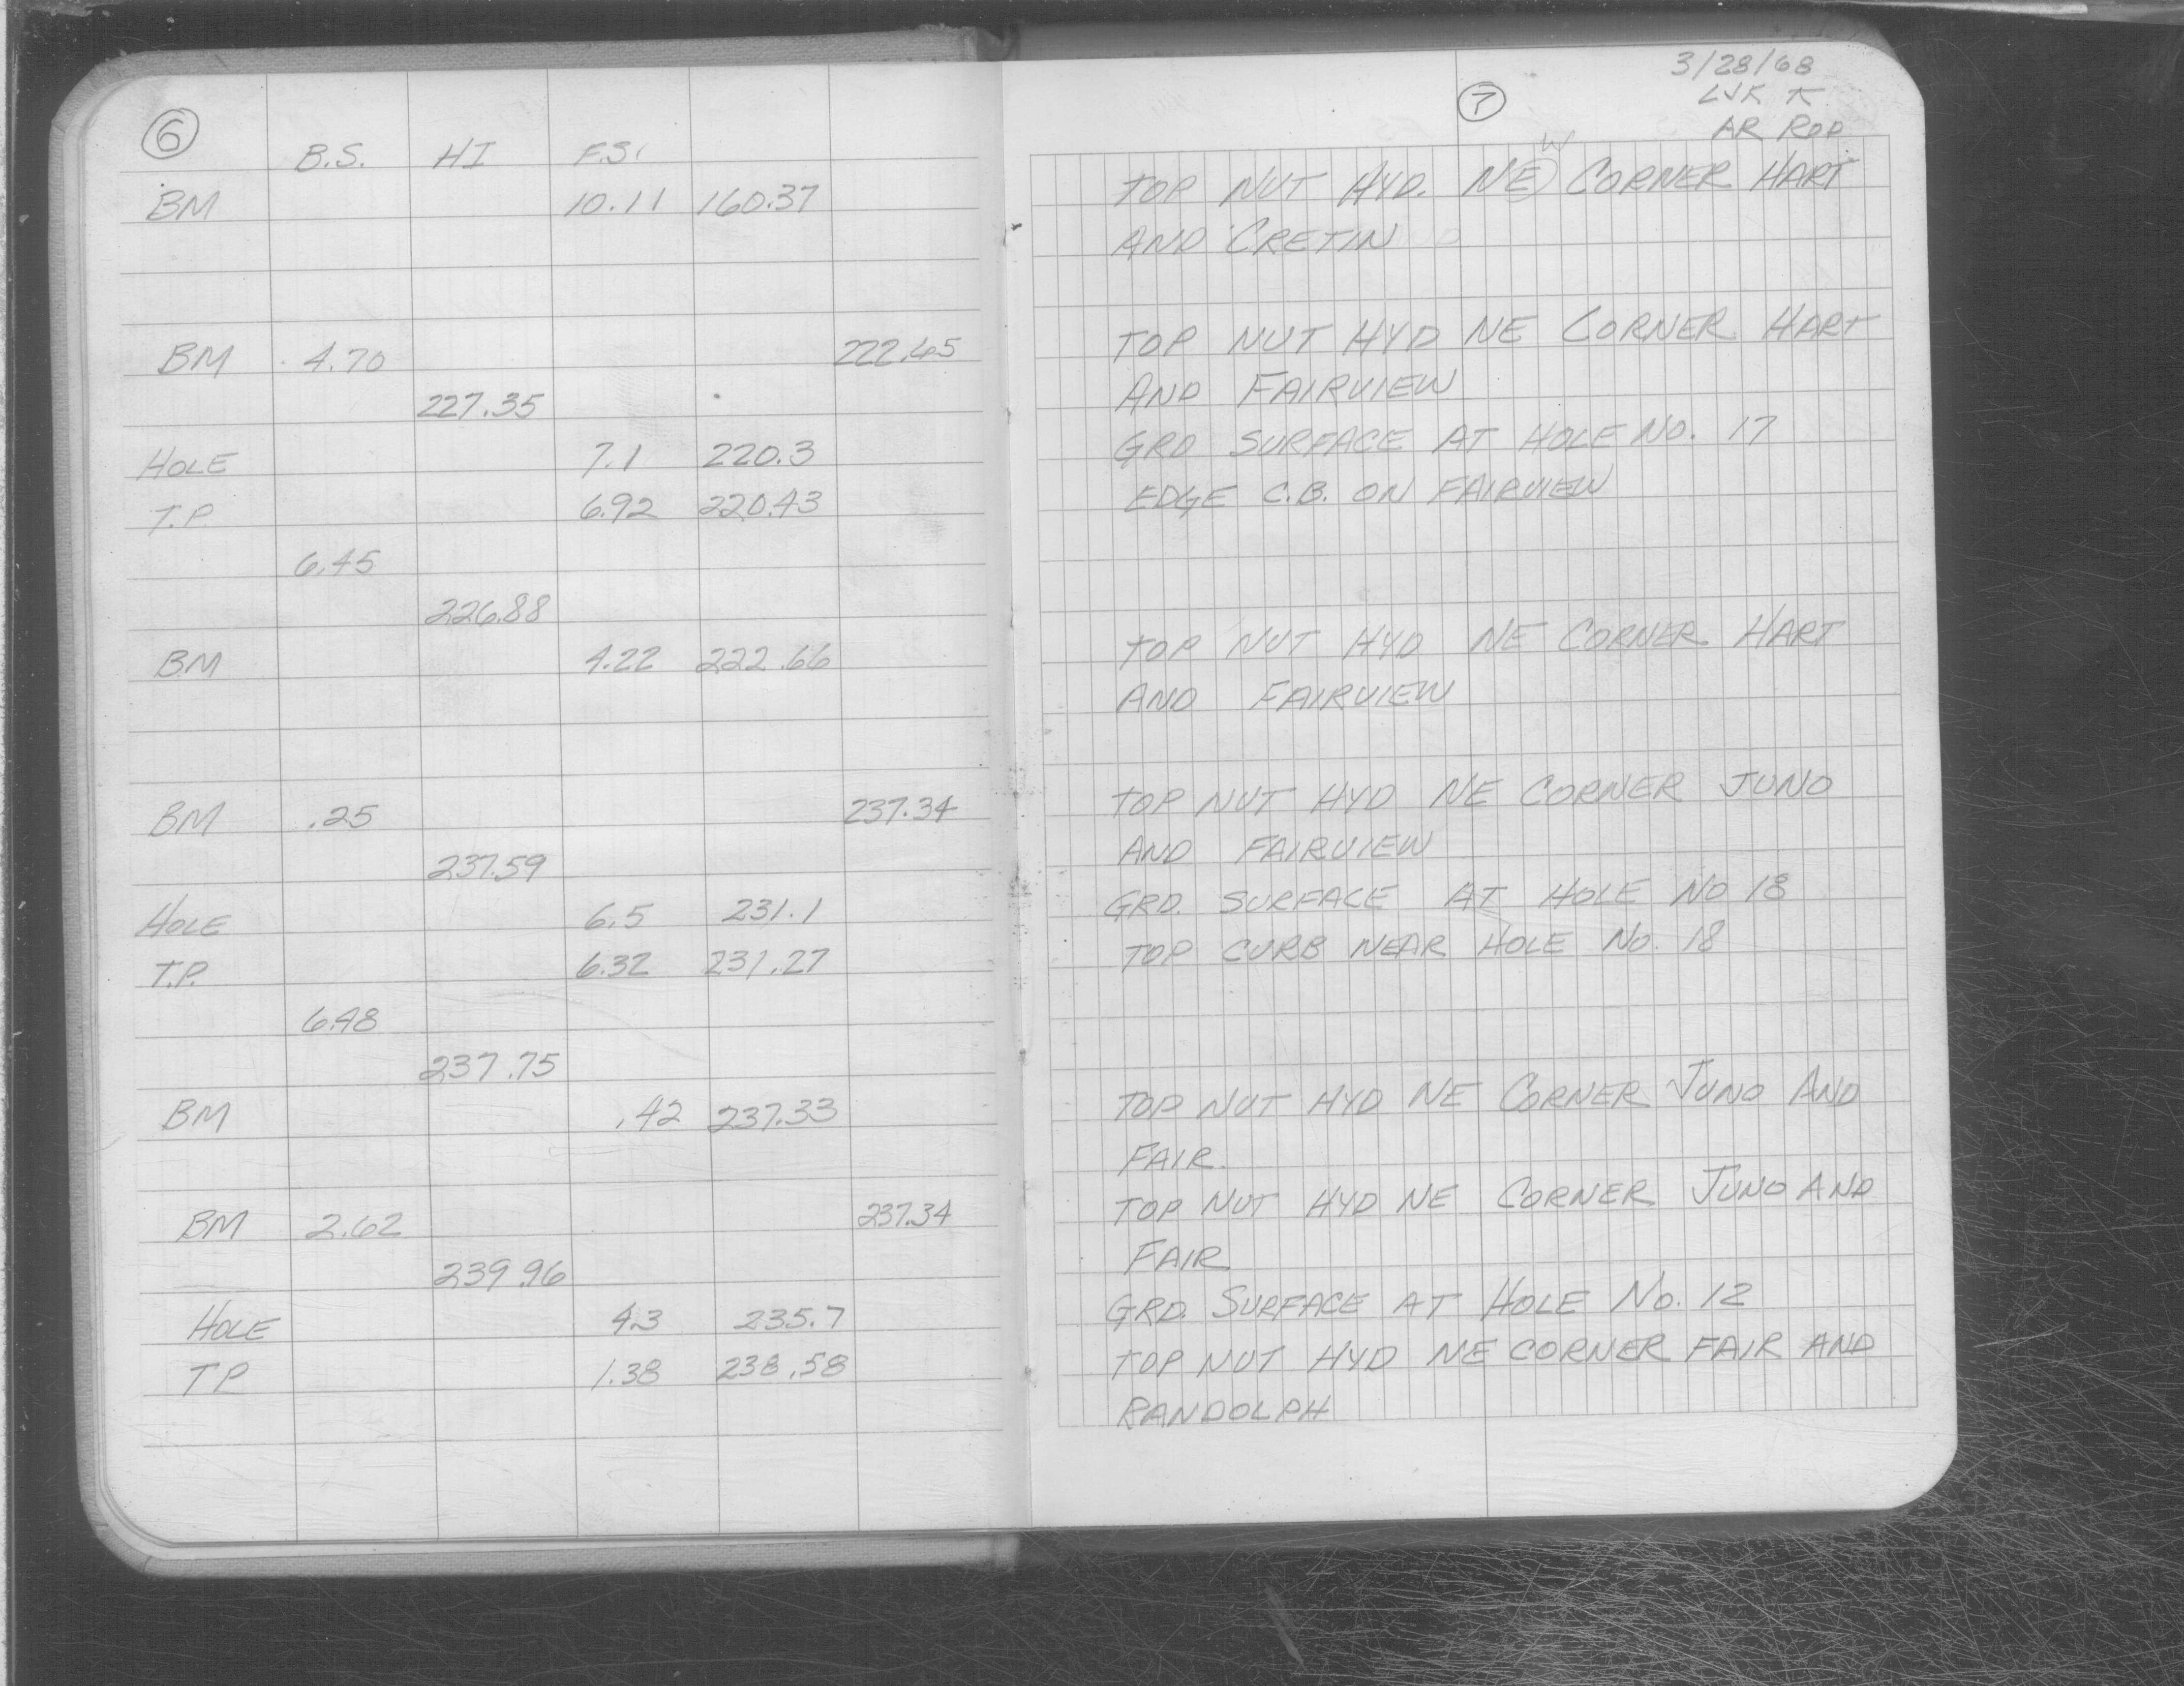 6
B.S. HI F.S.
BM 10.11 160.37
BM 4.70 222.65
227.35
HOLE 7.1 220.3
T.P. 6.92 220.43
6.45
226.88
BM 4.22 222.66
BM .25 237.34
237.59
HOLE 6.5 231.1
T.P. 6.32 231.27
6.48
237.75
BM .42 237.33
BM 2.62 237.34
239.96
HOLE 4.3 235.7
TP 1.38 238.58
7
3/28/68
AR ROD
W
TOP NUT HYD. NE CORNER HART
AND CRETIN
TOP NUT HYD NE CORNER HART
AND FAIRVIEW
GRD SURFACE AT HOLE NO. 17
EDGE C.B. ON FAIRVIEW
TOP NUT HYD NE CORNER HART
AND FAIRVIEW
TOP NUT HYD NE CORNER JUNO
AND FAIRVIEW
GRD. SURFACE AT HOLE NO 18
TOP CURB NEAR HOLE NO. 18
TOP NUT HYD NE CORNER JUNO AND
FAIR.
TOP NUT HYD NE CORNER JUNO AND
FAIR
GRD. SURFACE AT HOLE NO. 12
TOP NUT HYD NE CORNER FAIR AND
RANDOLPH